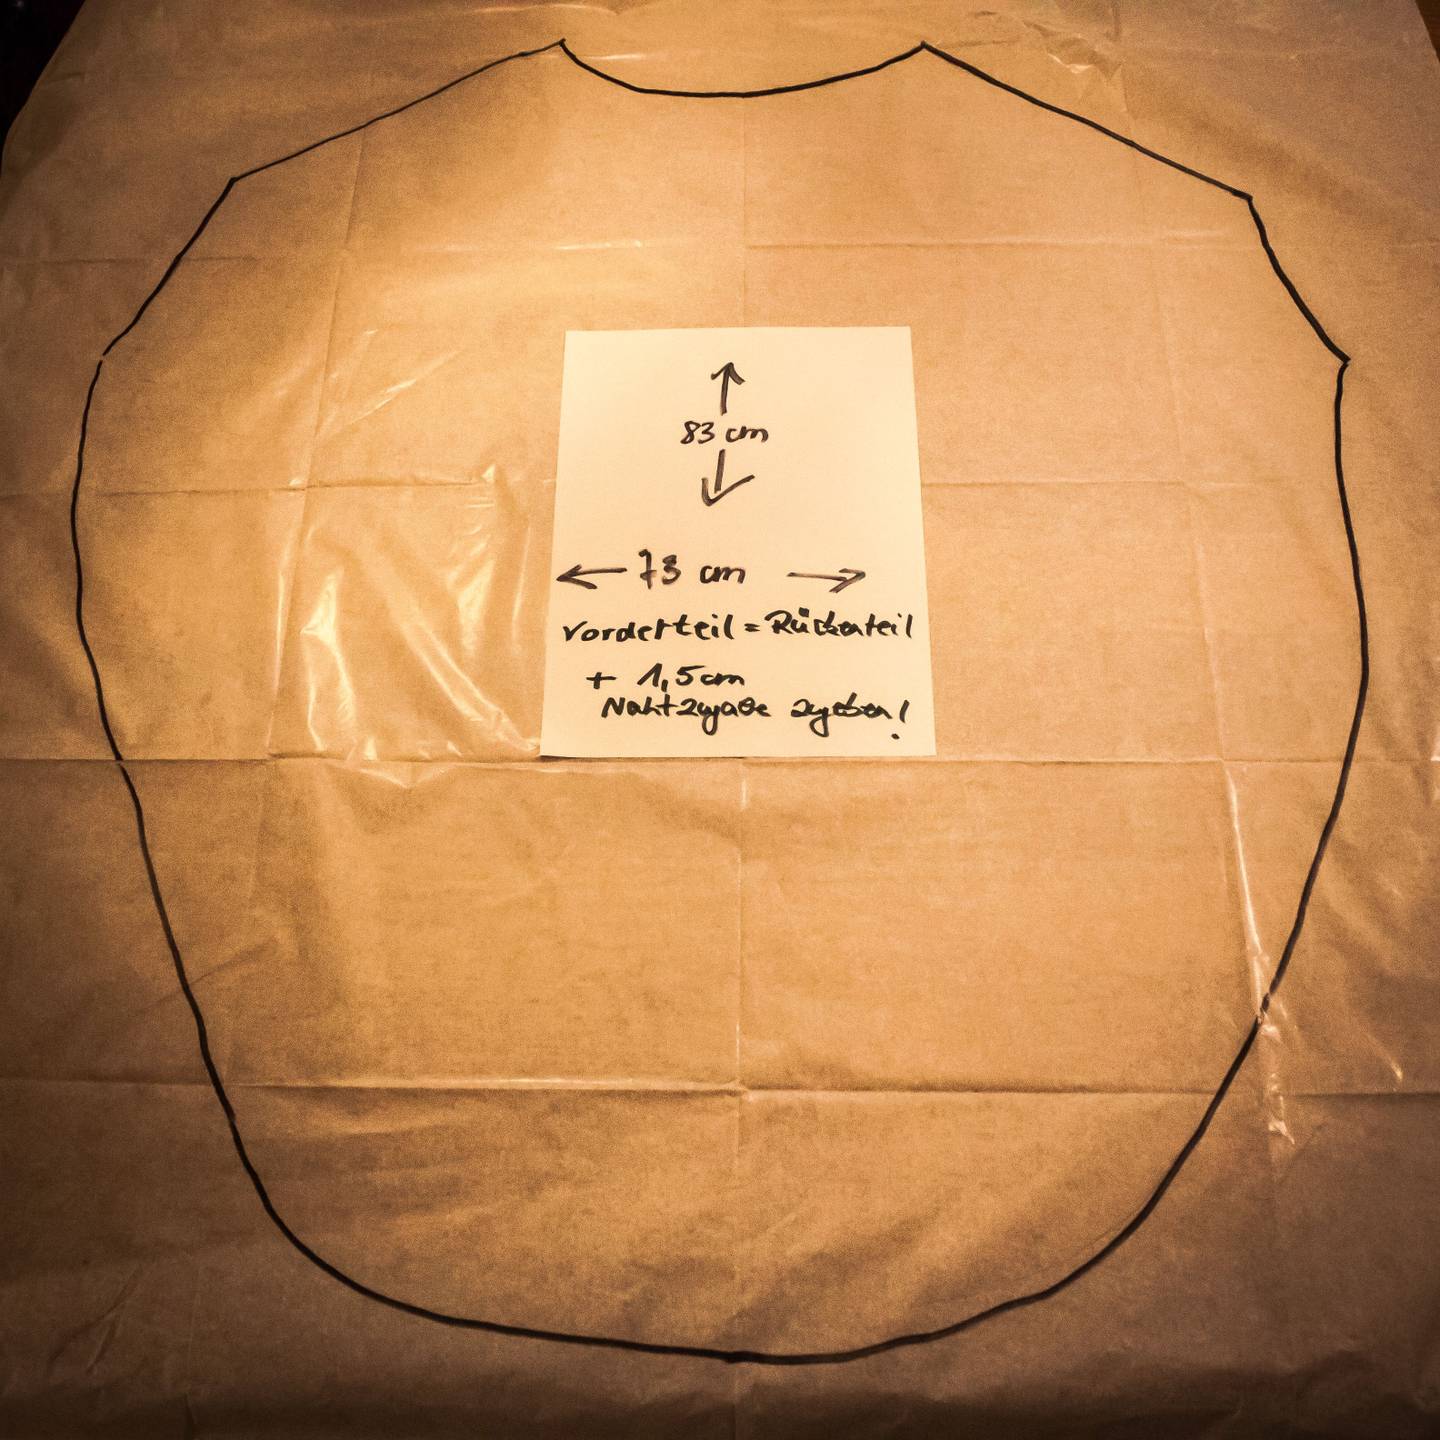 83 cm
73 cm
Vorderteil = Rückenteil
+ 1,5 cm
Nahtzugabe zugeben!